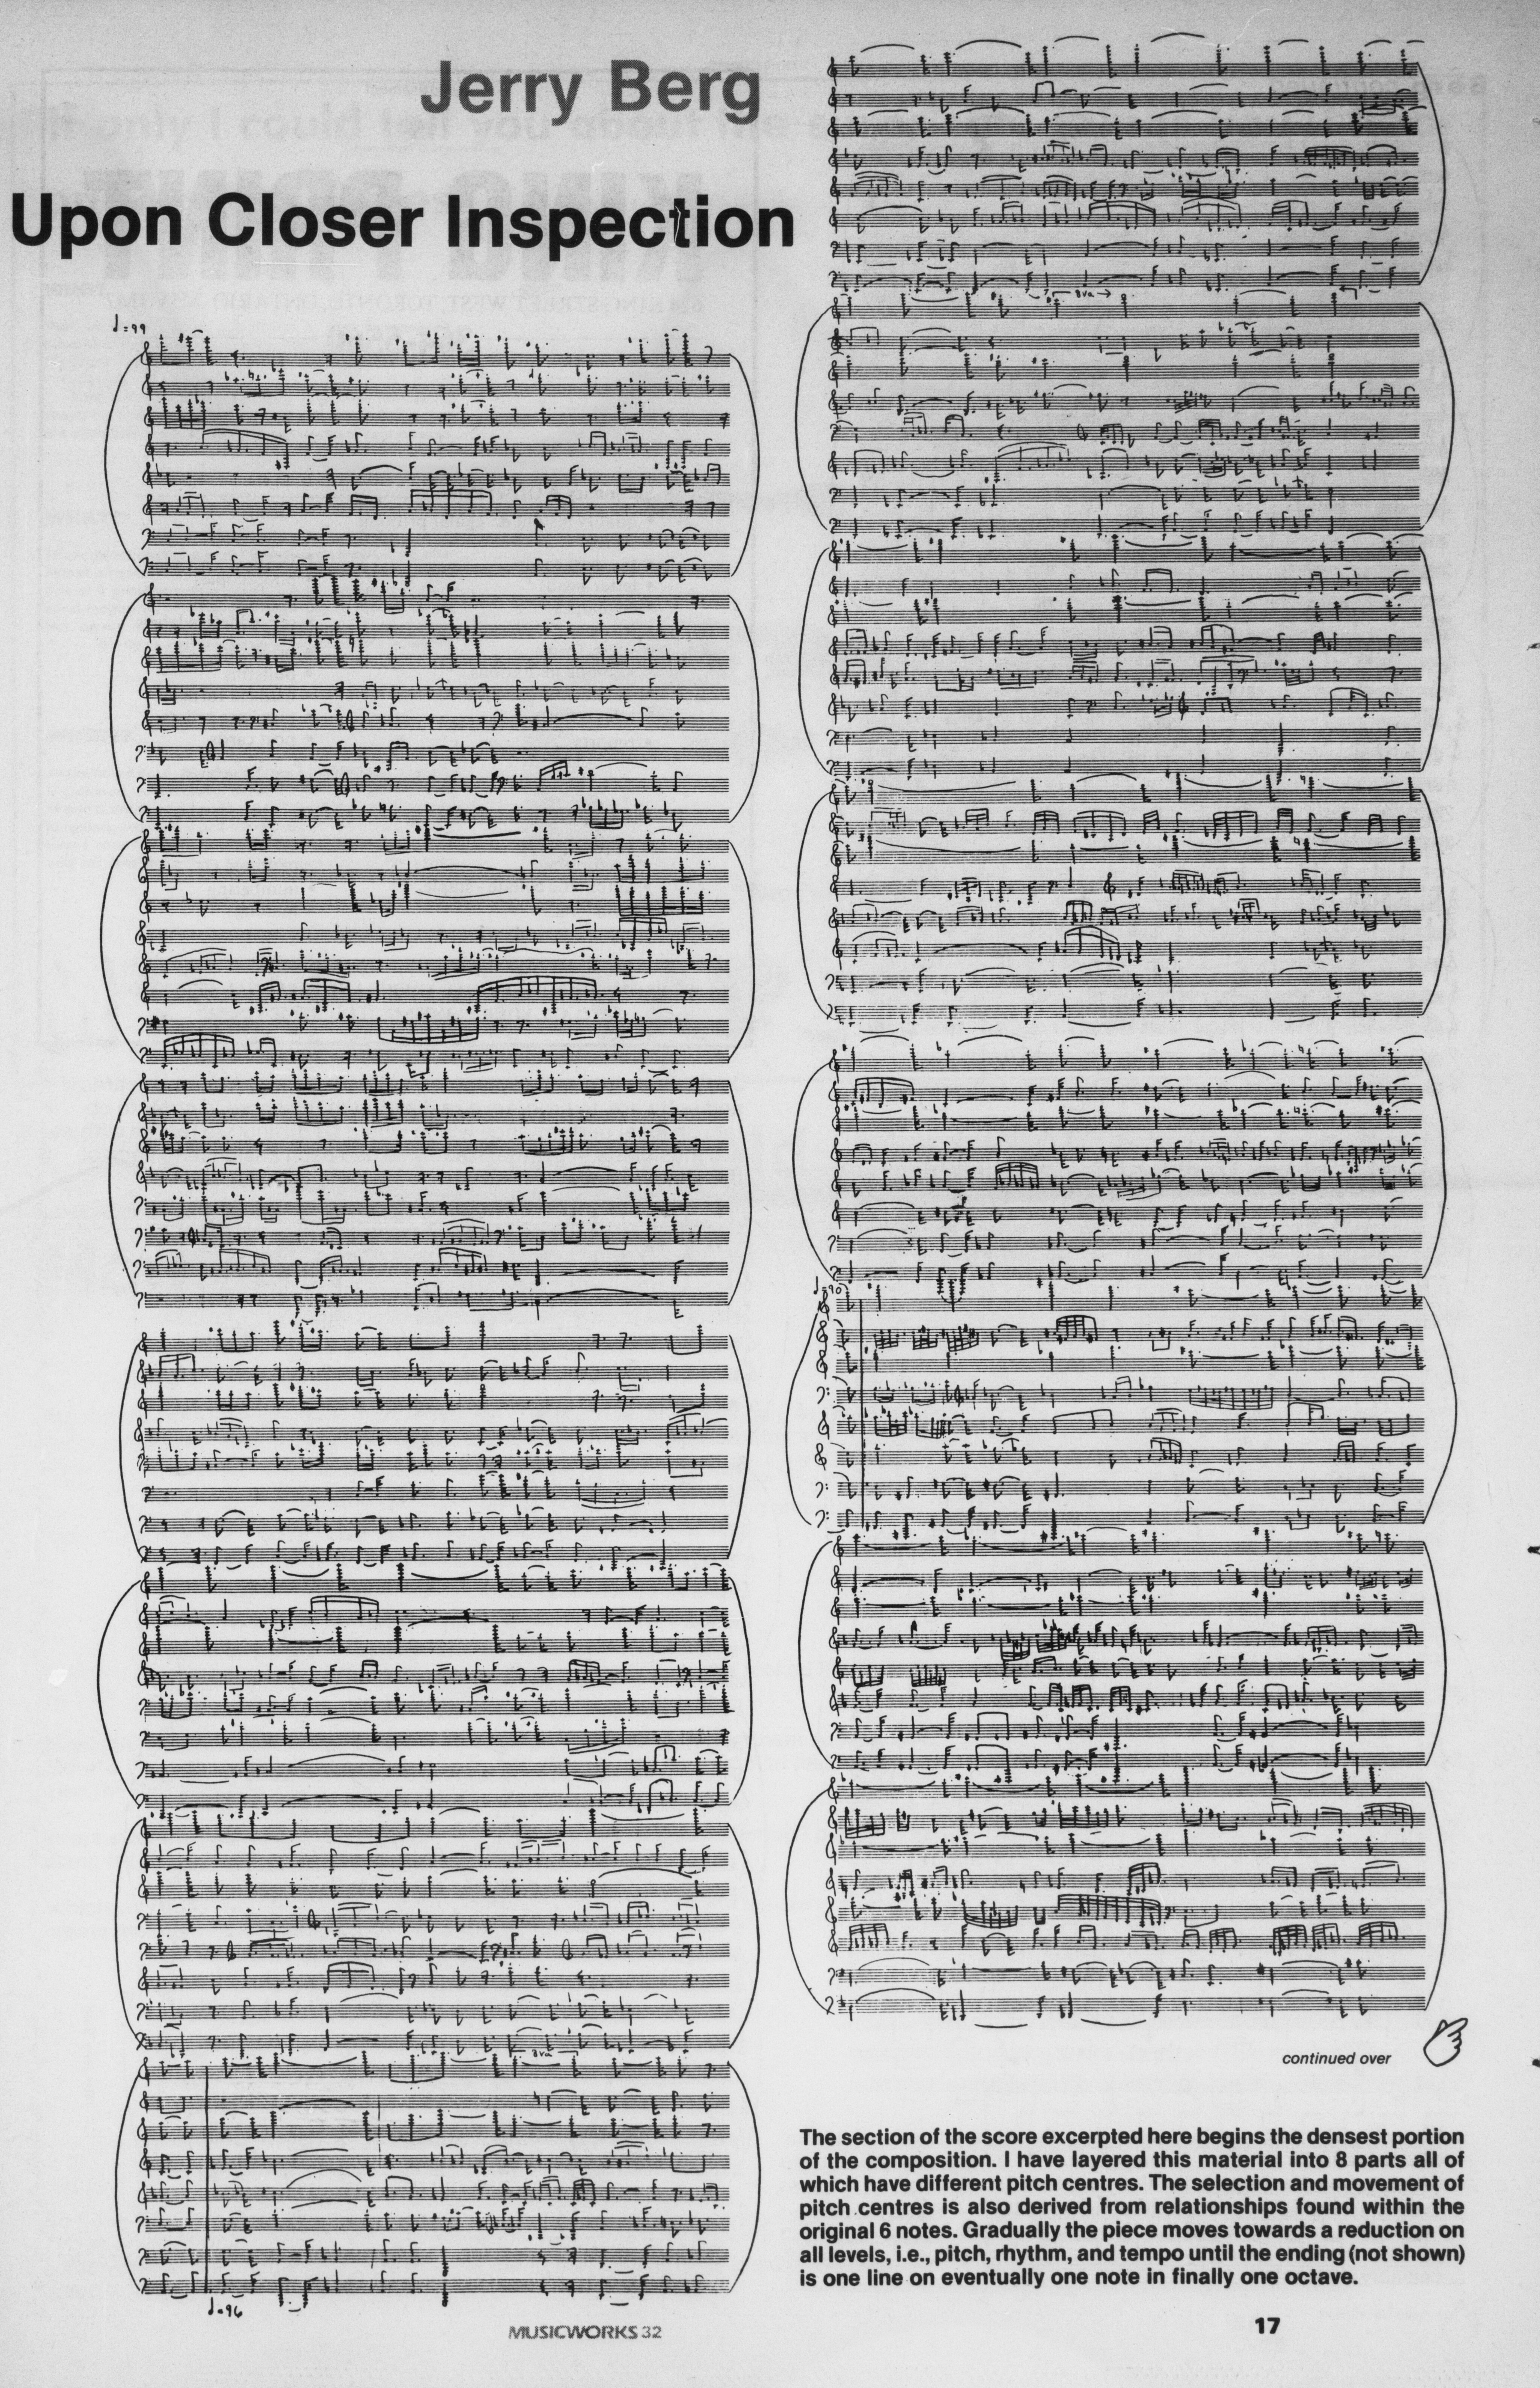 Jerry Berg
Upon Closer Inspection
♩=99
8va→
♩=90
8va
♩=96
continued over
The section of the score excerpted here begins the densest portion
of the composition. I have layered this material into 8 parts all of
which have different pitch centres. The selection and movement of
pitch centres is also derived from relationships found within the
original 6 notes. Gradually the piece moves towards a reduction on
all levels, i.e., pitch, rhythm, and tempo until the ending (not shown)
is one line on eventually one note in finally one octave.
MUSICWORKS 32
17